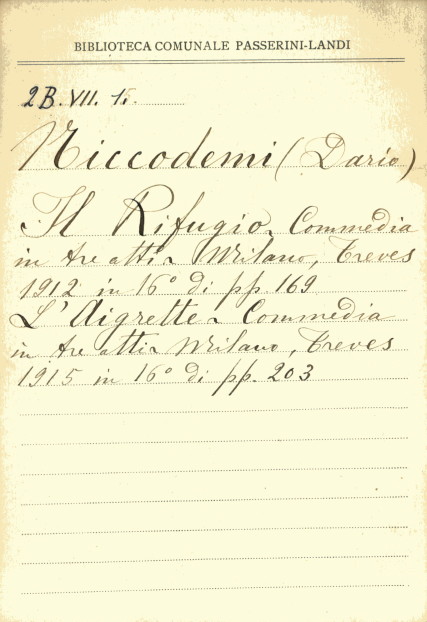 BIBLIOTECA COMUNALE PASSERINI-LANDI
2B. VII. 15.
Niccodemi (Dario)
Il Rifugio. Commedia
in tre atti. Milano, Treves
1912 in 16° di pp. 169
L'Aigrette. Commedia
in tre atti. Milano, Treves
1915 in 16° di pp. 203